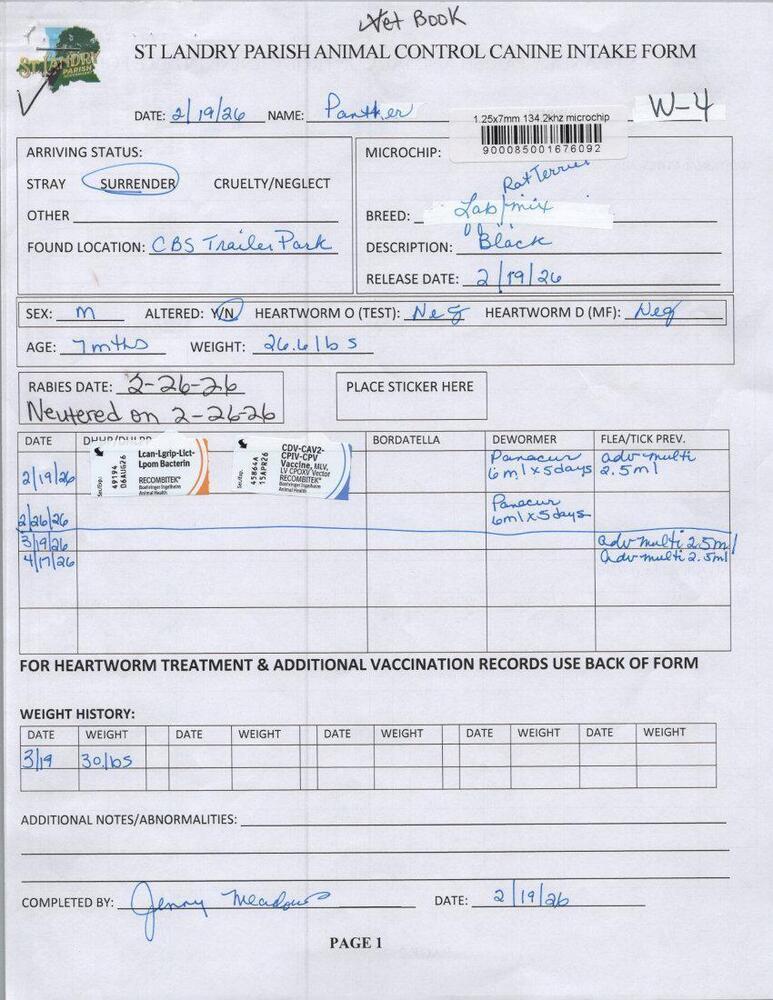 Vet Book
ST LANDRY PARISH
ST LANDRY PARISH ANIMAL CONTROL CANINE INTAKE FORM
DATE: 2/19/26 NAME: Panther W-4
1.25x7mm 134.2khz microchip
900085001676092
ARRIVING STATUS:
MICROCHIP:
STRAY SURRENDER CRUELTY/NEGLECT
Rat Terrier
OTHER
BREED: Lab/mix
FOUND LOCATION: CBS Trailer Park
DESCRIPTION: Black
RELEASE DATE: 2/19/26
SEX: M ALTERED: Y/N HEARTWORM O (TEST): Neg HEARTWORM D (MF): Neg
AGE: 7 mths WEIGHT: 26.6 lbs
RABIES DATE: 2-26-26 PLACE STICKER HERE
Neutered on 2-26-26
DATE BORDATELLA DEWORMER FLEA/TICK PREV.
2/19/26 Panacur 6ml x 5days adv multi 2.5ml
Lcan-Lgrip-Lict-
Lpom Bacterin
RECOMBITEK
Boehringer Ingelheim
Animal Health
Ser/Exp.
49194
06AUG26
CDV-CAV2-
CPIV-CPV
Vaccine, MLV,
LV CPOXV Vector
RECOMBITEK
Boehringer Ingelheim
Animal Health
Ser/Exp.
45864A
15APR26
2/26/26 Panacur 6ml x 5days
3/19/26 adv multi 2.5ml
4/17/26 adv multi 2.5ml
FOR HEARTWORM TREATMENT & ADDITIONAL VACCINATION RECORDS USE BACK OF FORM
WEIGHT HISTORY:
DATE WEIGHT DATE WEIGHT DATE WEIGHT DATE WEIGHT DATE WEIGHT
3/19 30lbs
ADDITIONAL NOTES/ABNORMALITIES:
COMPLETED BY: Jenny Meadows DATE: 2/19/26
PAGE 1